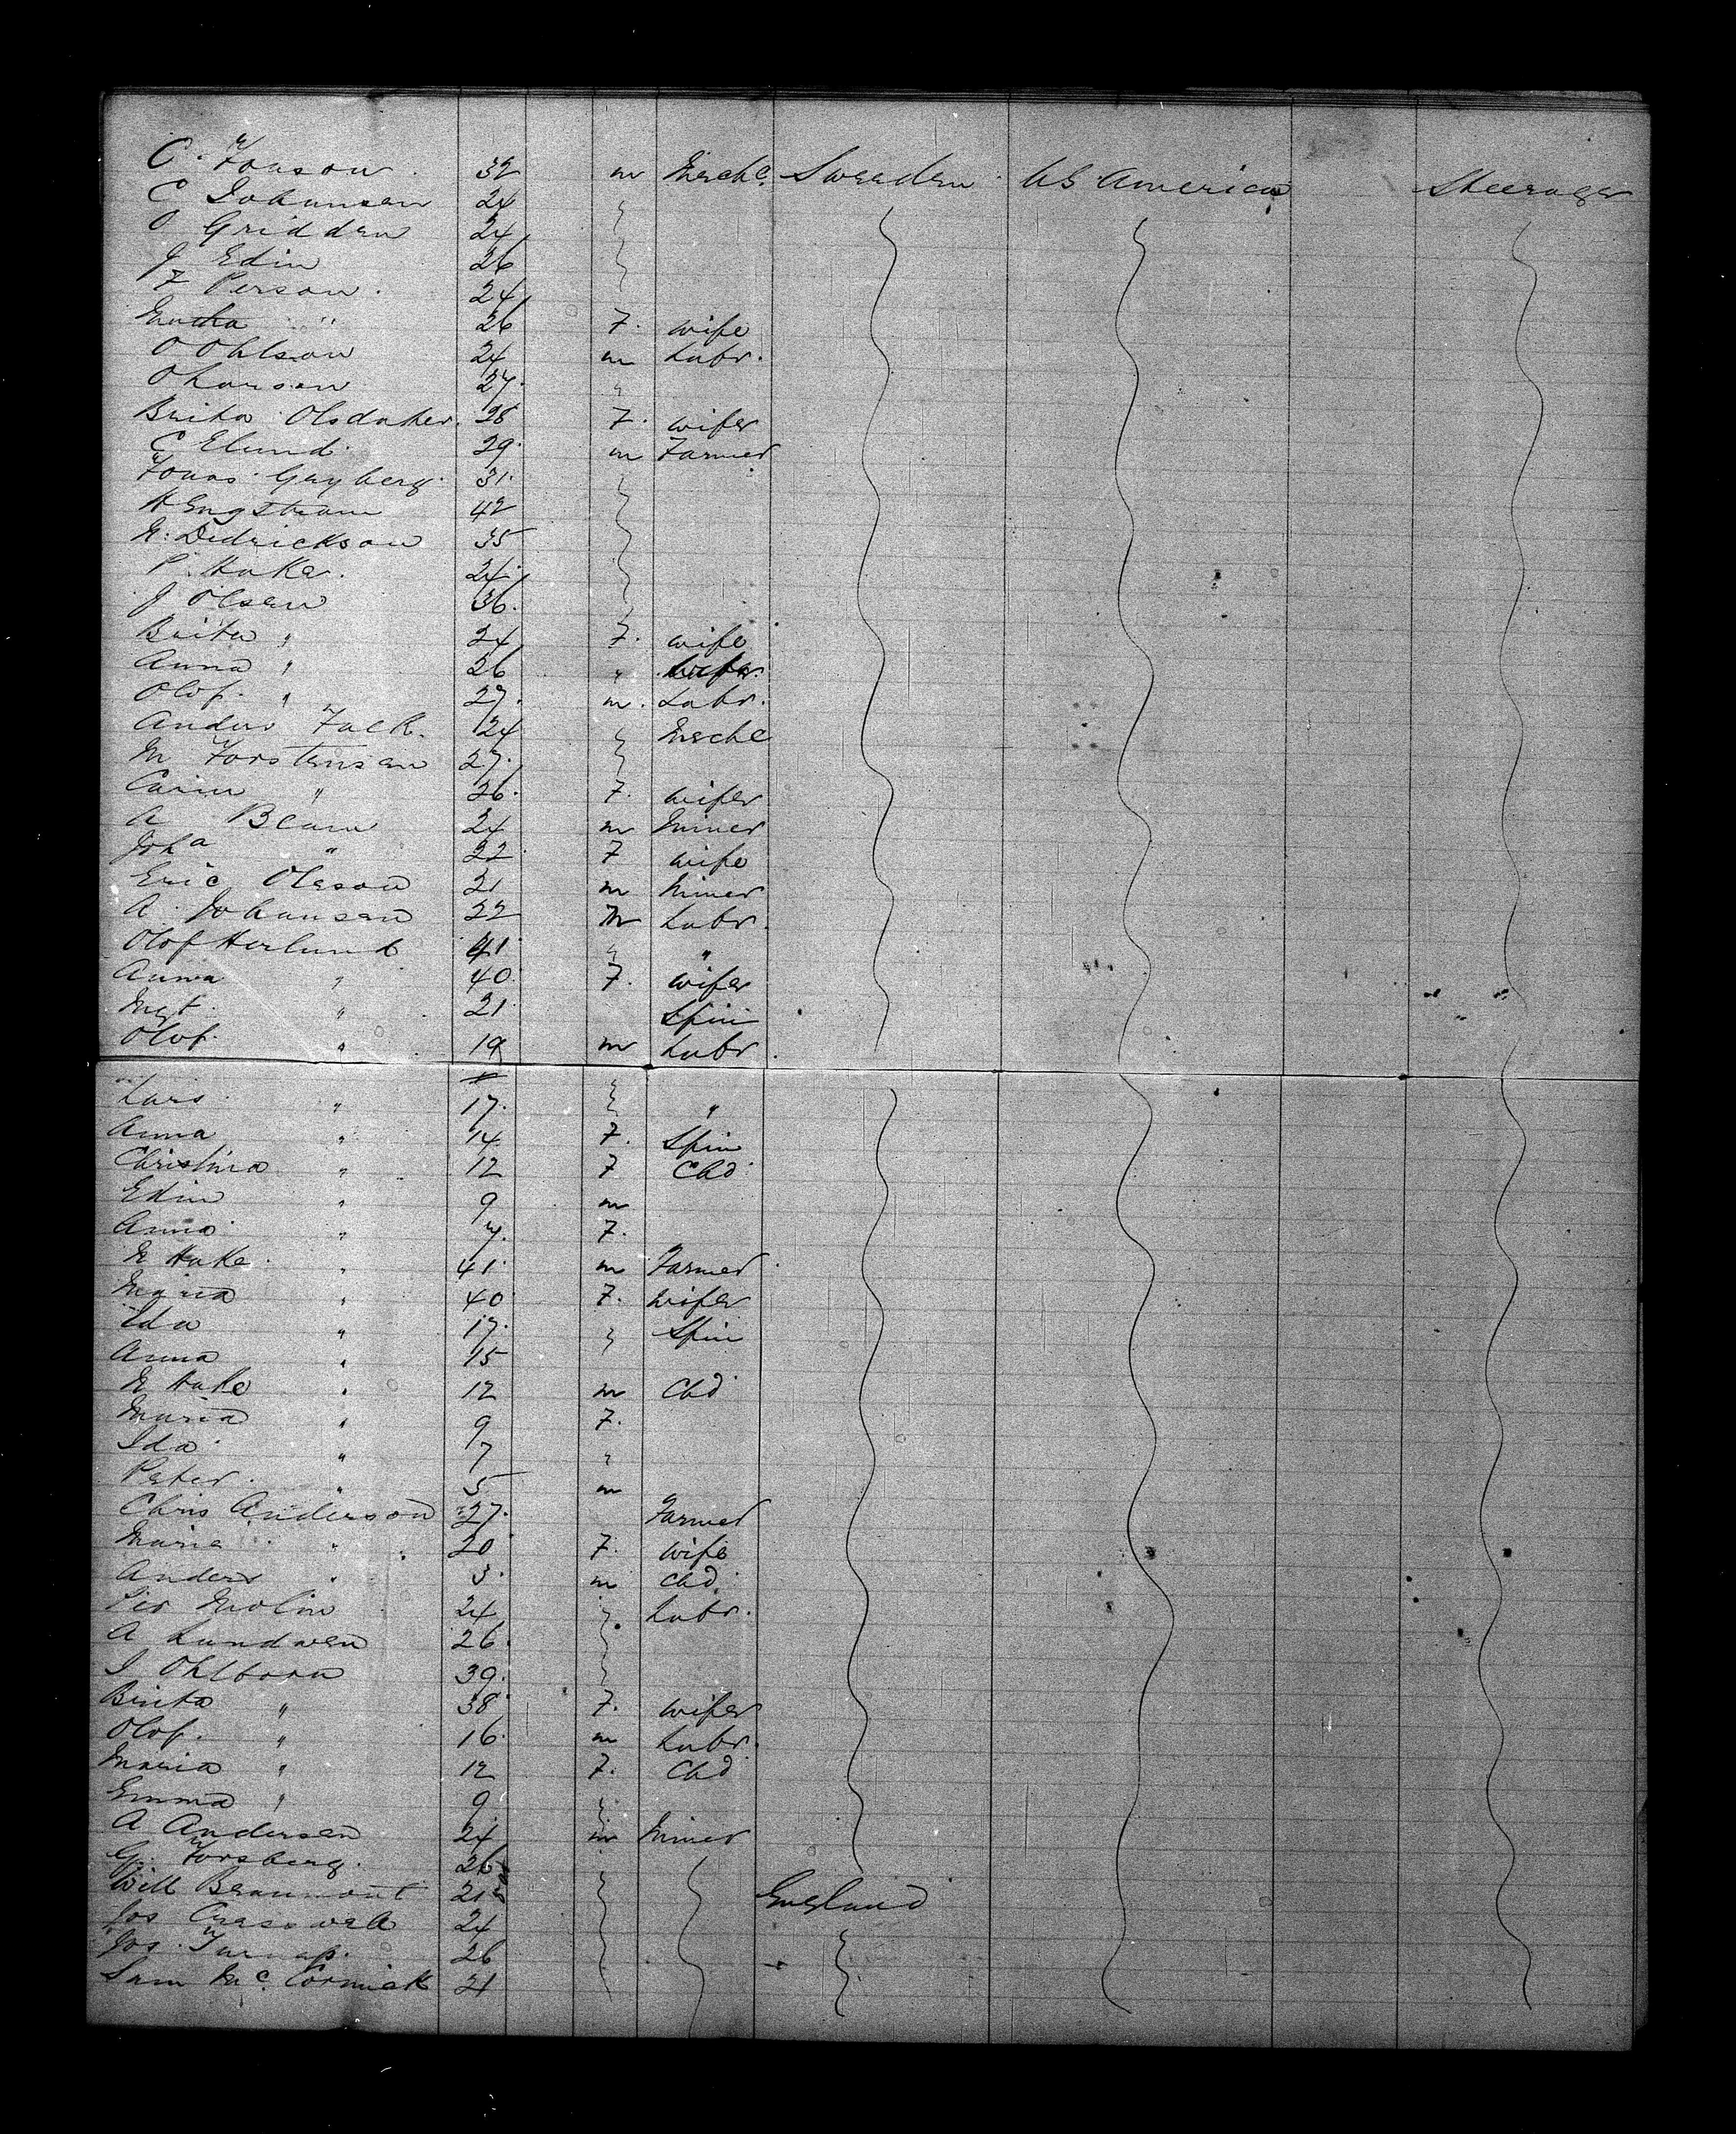 C. Fonson 32 m Mechc. Sweeden US America Steerage
C Johansen 24
O Gridden 24
J Edin 26
F Person. 24
" 26 F. wife
O Ohlson 24 m Labr.
O Larsen 27. "
Brita Olsdater. 28 F. wife
C Elund. 29. m Farmer
Jonas Gayberg. 31.
A Engstrom 42
N. Didrickson 35
P. Hake. 24.
J Olsen 36.
Brita " 24 F. wife
Anna " 26 " wife.
Olof. " 27. m. Labr.
Anders Falk. 24 Mechc
M Torstensen 27.
Carin " 26. F. wife
A Blum 24 m Miner
Joha " 22 F wife
Eric Oleson 21 m Miner
A. Johansen 22 m Labr.
Olof Herlund 41. " "
Anna " 40 F. wife
Mgt. " 21. Spin
Olof. " 19 m Labr.
Lars. " 17. "
Anna " 14 F. Spin
Christina " 12 F Chd
Edin " 9 m
Anna " 7. F.
N Hake. " 41. m Farmer
Maria " 40 F. wife
Ida " 17. Spin
Anna " 15
N Hake " 12 m Chd
Maria " 9 F.
Ida. " 7 "
Peter. " 5 m
Chris Anderson 27. Farmer
Marie " 20 F. wife
Anders " 3. m Chd.
Per Molin 24 Labr.
A Lundven 26.
J Ohlborn 39.
Brita " 38 F. wife
Olof. " 16. m Labr.
Maria " 12 F. Chd
Emma " 9
A Andersen 24 m Miner
G. Forsberg. 26
Will Beaumont 21 England
Jos 24
Jos. 26
Sam McCormick 21